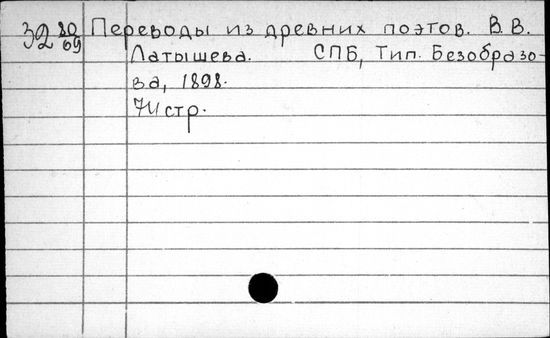 39 80/69 Переводы из древних поэтов. В.В.
Латышева. СПБ, Тип. Безобразо-
ва, 1898.
74 стр.